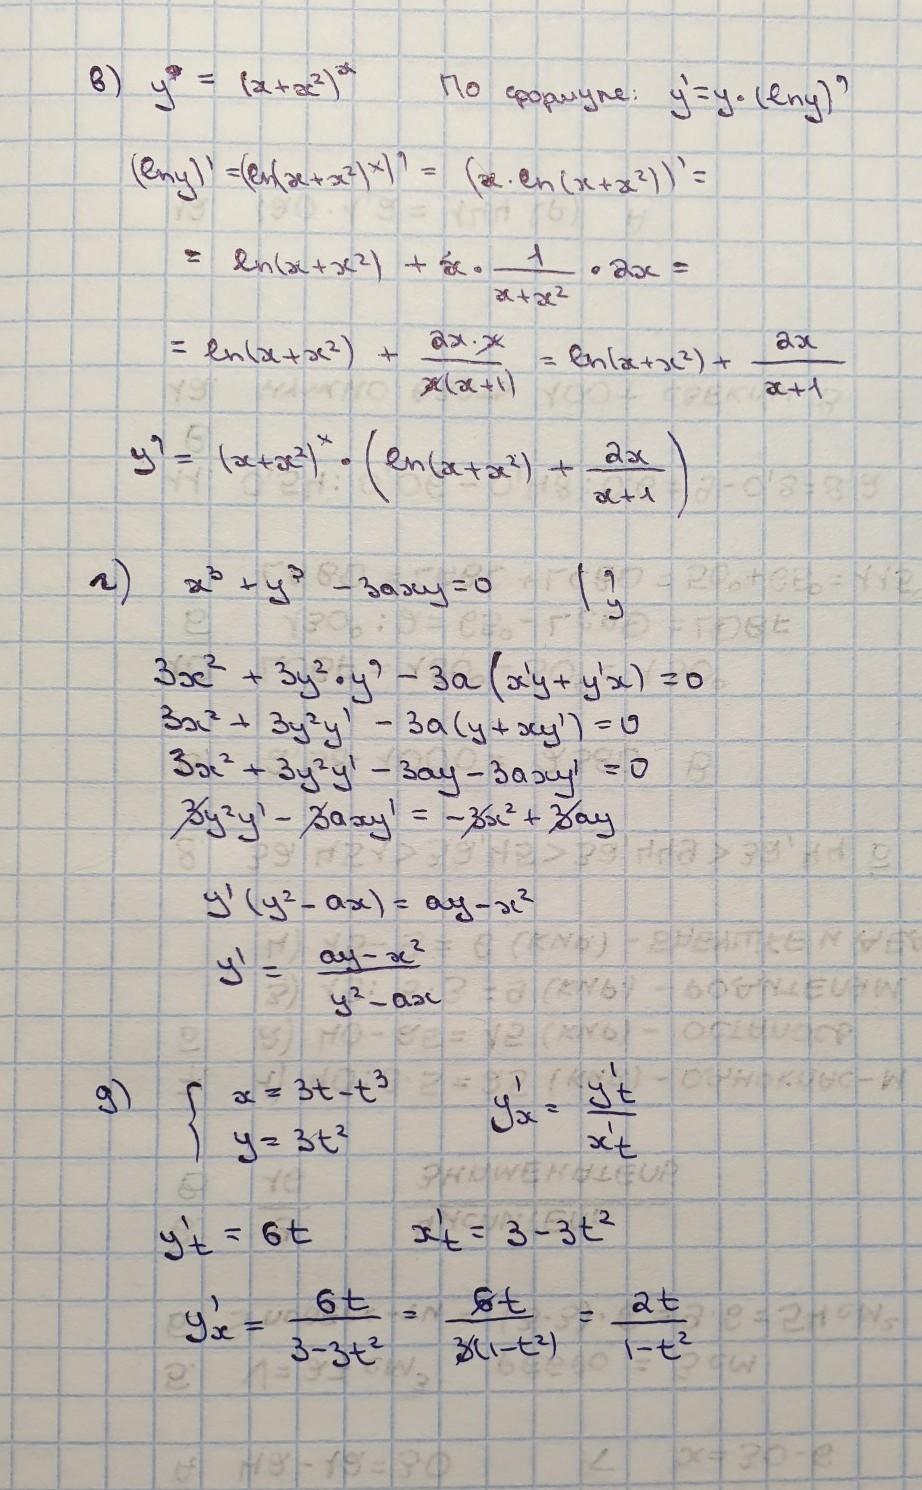 в) y = (x+x²)ˣ По формуле: y' = y·(lny)'
(lny)' = (ln(x+x²)ˣ)' = (x·ln(x+x²))' =
= ln(x+x²) + x · 1/(x+x²) · 2x =
= ln(x+x²) + (2x·x)/(x(x+1)) = ln(x+x²) + 2x/(x+1)
y' = (x+x²)ˣ · (ln(x+x²) + 2x/(x+1))
г) x³ + y³ - 3axy = 0 |'y
3x² + 3y²·y' - 3a(x'y + y'x) = 0
3x² + 3y²y' - 3a(y + xy') = 0
3x² + 3y²y' - 3ay - 3axy' = 0
3y²y' - 3axy' = -3x² + 3ay
y'(y² - ax) = ay - x²
y' = (ay - x²)/(y² - ax)
g) { x = 3t - t³ y'x = y't/x't
y = 3t²
y't = 6t x't = 3 - 3t²
y'x = 6t/(3 - 3t²) = 6t/(3(1 - t²)) = 2t/(1 - t²)